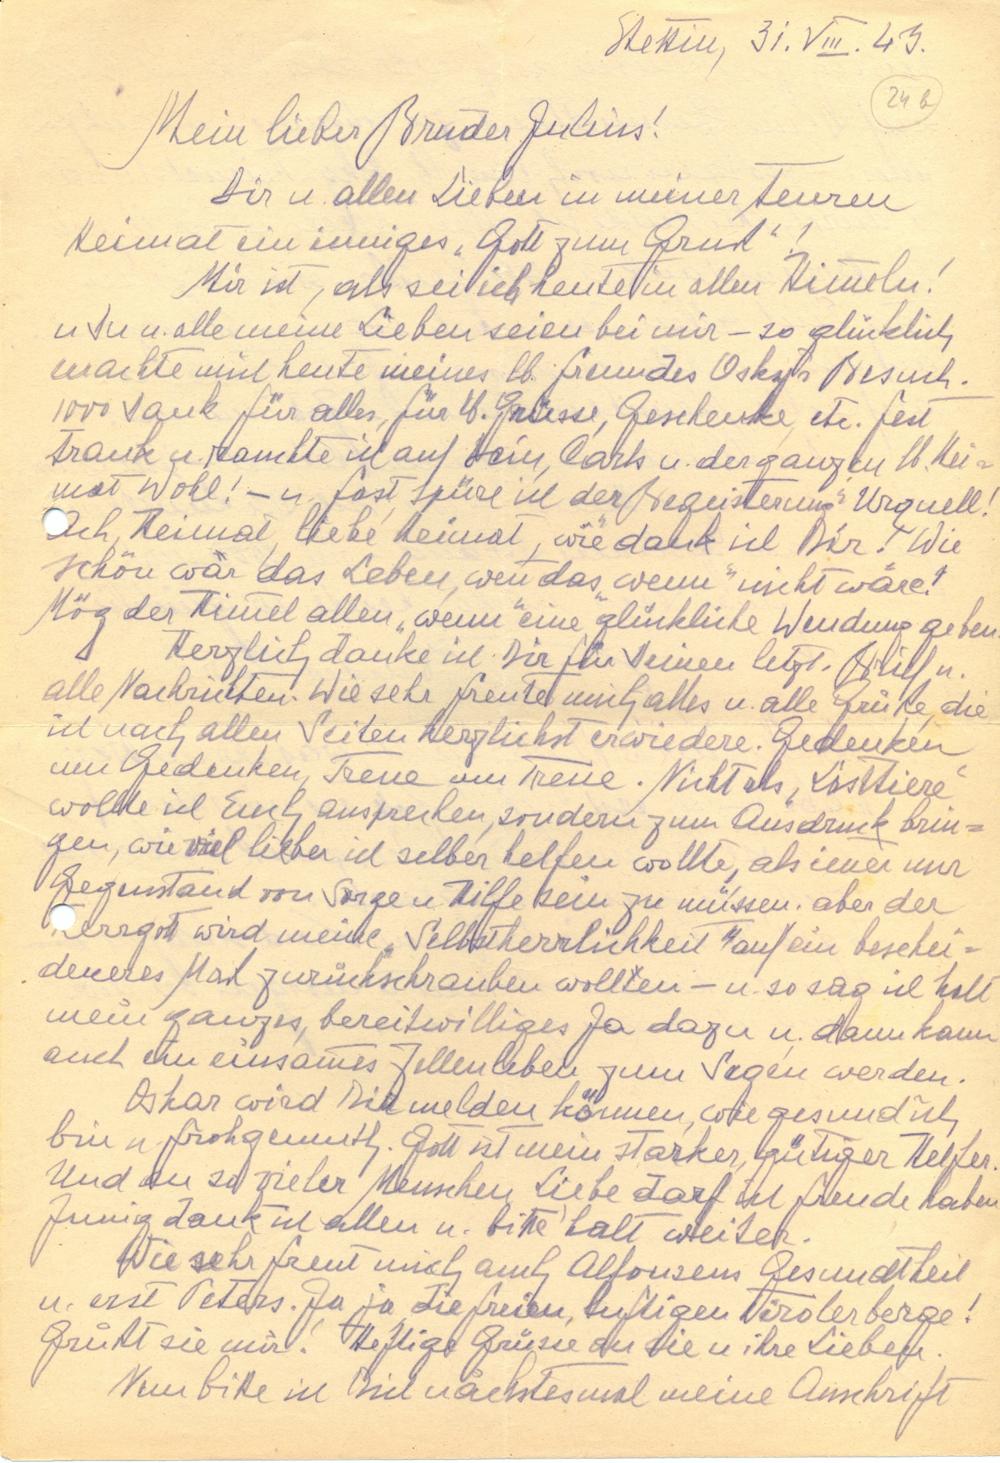 Stettin, 31. VIII. 43.
24 b
Mein lieber Bruder Julius!
Dir u. allen Lieben in meiner teuren
Heimat ein inniges „Gott zum Gruß"!
Mir ist, als sei ich heute in allen Himeln!
u Du u. alle meine Lieben seien bei mir – so glücklich
machte mich heute meines lb. Freundes Oskars Besuch.
1000 Dank für alles, für lb. Grüsse, Geschenke, etc. fest
trank u. rauchte ich auf Dein, Carls u. der ganzen lb. Hei=
mat Wohl! – u. fast spüre ich der Begeisterung Urquell!
Ach, Heimat, liebe Heimat, wie dank ich Dir! Wie
schön wär das Leben, wen das „wenn" nicht wäre!
Mög der Himel allen „wenn" eine glückliche Wendung geben.
Herzlich danke ich Dir für Deinen letzt. Brief u.
alle Nachrichten. Wie sehr freute mich alles u. alle Grüße, die
ich nach allen Seiten herzlichst erwiedere. Gedenken
um Gedenken, Treue um Treue. Nicht als „Lasttiere"
wollte ich Euch ansprechen, sondern zum Ausdruck brin=
gen, wie viel lieber ich selber helfen wollte, als imer nur
Gegenstand von Sorge u Hilfe sein zu müssen. aber der
Herrgott wird meine „Selbstherrlichkeit" auf ein beschei=
deneres Maß zurückschrauben wollten – u. so sag ich halt
mein ganzes, bereitwilliges Ja dazu u. dann kann
auch ein einsames Zellenleben zum Segen werden.
Oskar wird Dir melden können, wie gesund ich
bin u. frohgemuth. Gott ist mein starker, gütiger Helfer.
Und an so vieler Menschen Liebe darf ich Freude haben
Innig dank ich allen u. bitte halt weiter.
Wie sehr freut mich auch Alfonsens Gesundtheit
u. erst Peters. Ja, ja, die freien, luftigen Tirolerberge!
Grüßt sie mir! Heftige Grüsse an Sie u ihre Lieben.
Nun bitte ich Dich nächstesmal meine Anschrift